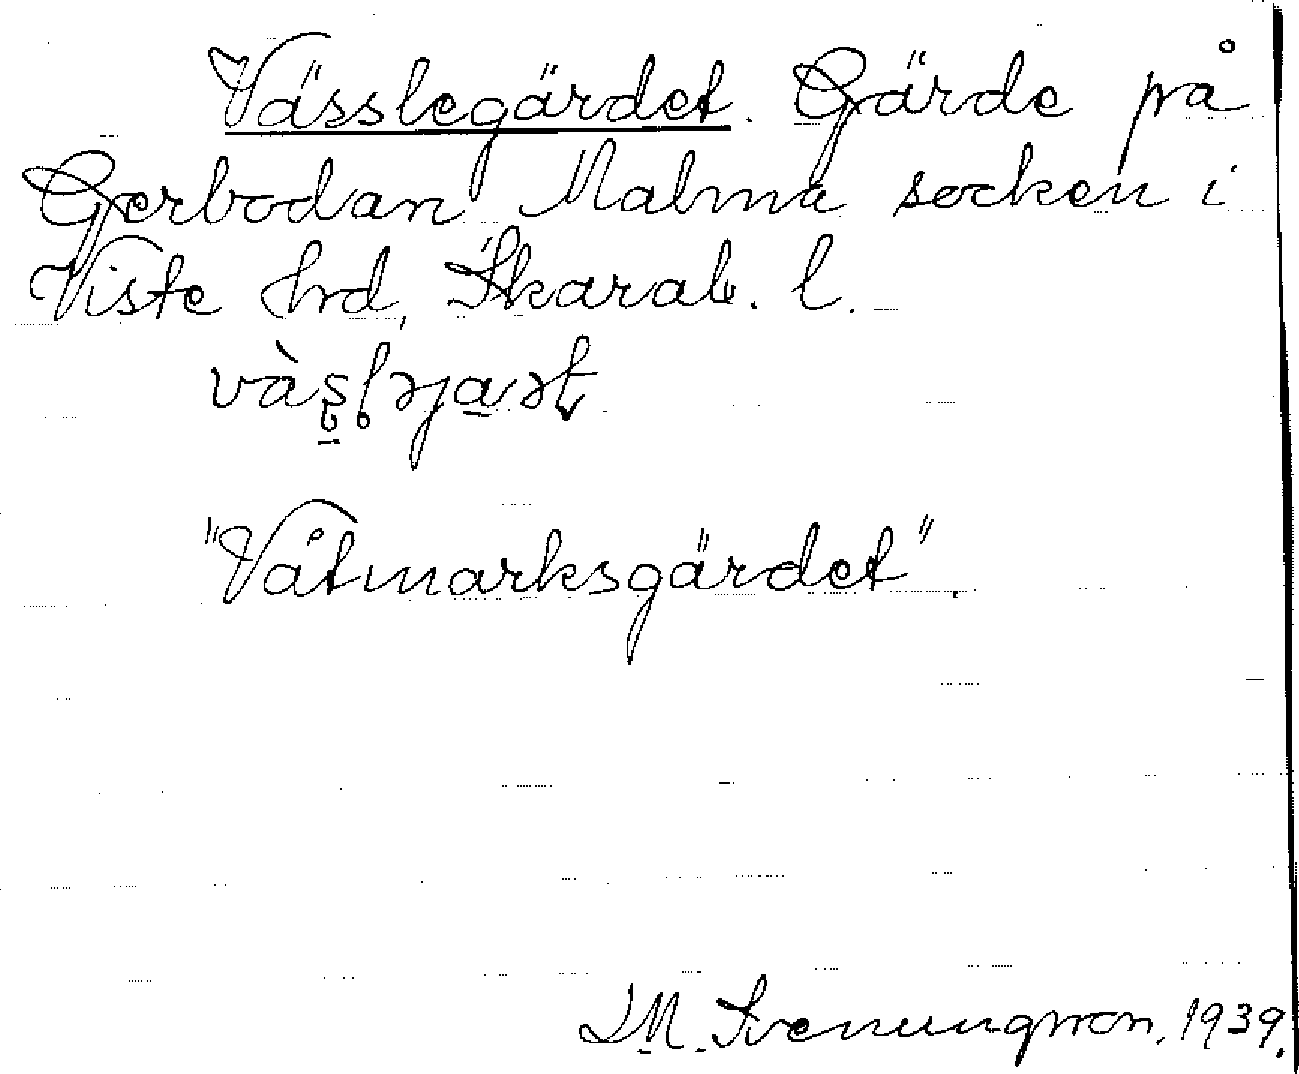 Vässlegärdet. Gärde på
Gerbodan Malma socken i
Viste hrd, Skarab. l.
"Våtmarksgärdet".
I.M. Svenungsson, 1939.